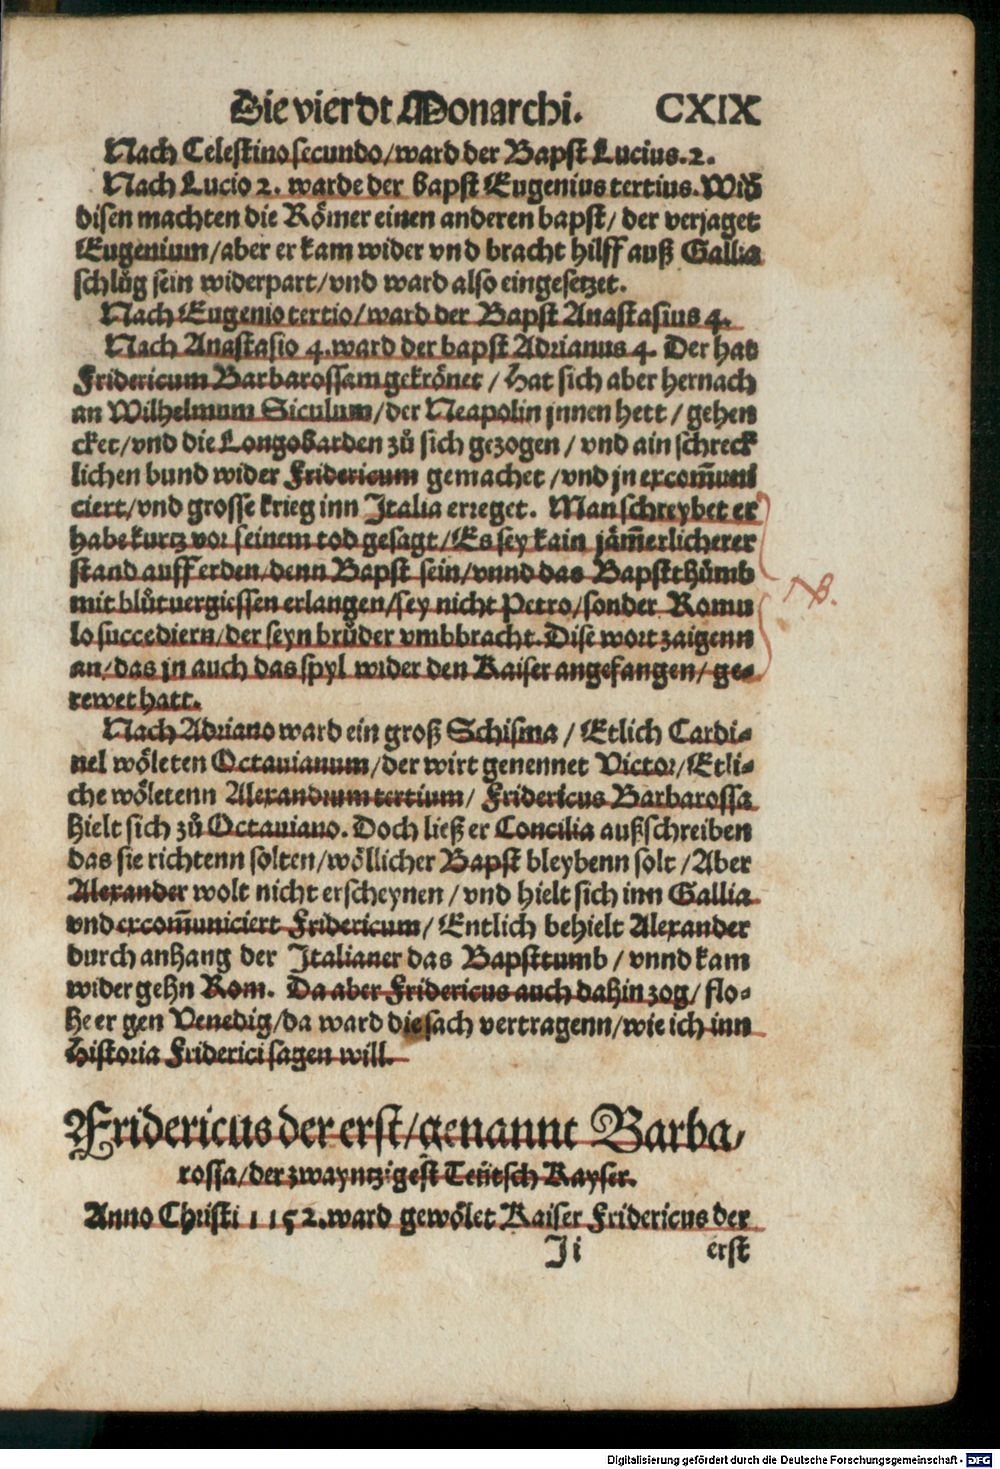 Die vierdt Monarchi. CXIX
Nach Celestino secundo/ward der Bapst Lucius.2.
Nach Lucio 2. warde der bapst Eugenius tertius. Wid̃
disen machten die Römer einen anderen bapst/ der verjaget
Eugenium/aber er kam wider vnd bracht hilff auß Gallia
schlůg sein widerpart/vnd ward also eingesetzet.
Nach Eugenio tertio/ward der Bapst Anastasius 4.
Nach Anastasio 4.ward der bapst Adrianus 4. Der hat
Fridericum Barbarossam gekrönet / Hat sich aber hernach
an Wilhelmum Siculum/der Neapolin jnnen hett / gehen
cket/vnd die Longobarden zů sich gezogen / vnd ain schreck
lichen bund wider Fridericum gemachet /vnd jn excom̃uni
ciert/vnd grosse krieg inn Italia erreget. Man schreybet er
habe kurtz vor seinem tod gesagt/Es sey kain jäm̃erlicherer
stand auff erden/denn Bapst sein/vnnd das Bapstthůmb
mit blůtuergiessen erlangen/sey nicht Petro/sonder Romu
lo succediern/der seyn brůder vmbbracht. Dise wort zaigenn
an/das jn auch das spyl wider den Kaiser angefangen/ ge-
rewet hatt.
NB.
Nach Adriano ward ein groß Schisma / Etlich Cardi-
nel wöleten Octauianum/der wirt genennet Victor/Etli-
che wöletenn Alexandrum tertium/ Fridericus Barbarossa
hielt sich zů Octauiano. Doch ließ er Concilia außschreiben
das sie richtenn solten/wöllicher Bapst bleybenn solt /Aber
Alexander wolt nicht erscheynen / vnd hielt sich inn Gallia
vnd excom̃uniciert Fridericum/ Entlich behielt Alexander
durch anhang der Italianer das Bapsttumb / vnnd kam
wider gehn Rom. Da aber Fridericus auch dahin zog/ flo-
he er gen Venedig/da ward die sach vertragenn/wie ich inn
Historia Friderici sagen will.
Fridericus der erst/genannt Barba-
rossa/der zwayntzigest Teütsch Kayser.
Anno Christi 1152.ward gewölet Kaiser Fridericus der
Ii erst
Digitalisierung gefördert durch die Deutsche Forschungsgemeinschaft - DFG